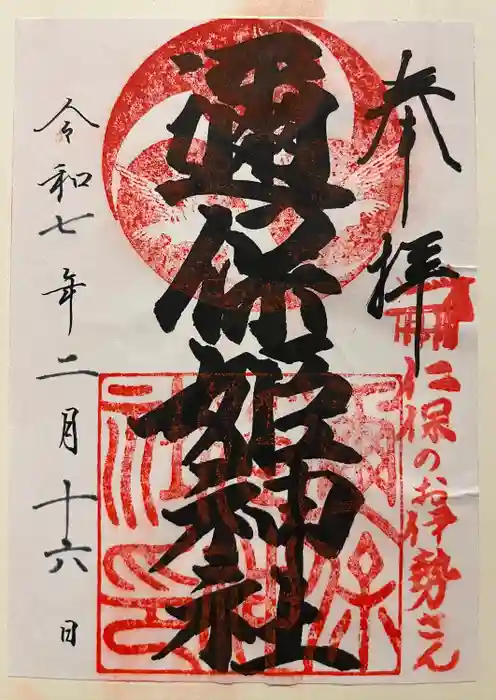 奉拝
仁保のお伊勢さん
邇保姫神社
令和七年二月十六日